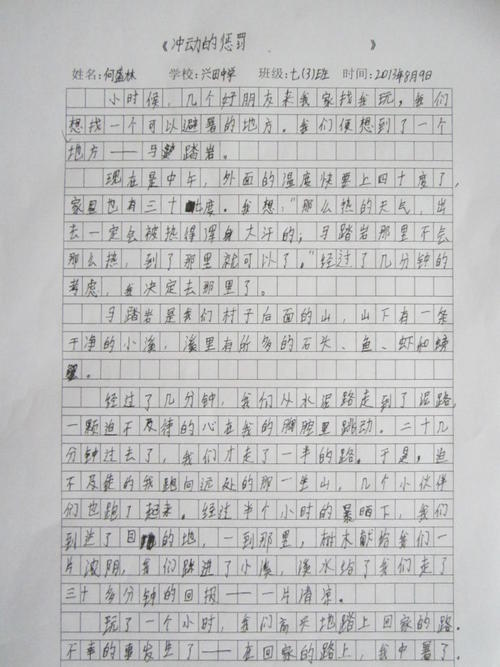 《冲动的惩罚》
姓名:何盛林 学校:兴田中学 班级:七(3)班 时间:2013年8月9日
小时候,几个好朋友来我家找我玩,我们
想找一个可以避暑的地方。我们便想到了一个
地方——马踏岩。
现在是中午,外面的温度快要上四十度了,
家里也有三十度。我想:“那么热的天气,出
去一定会被热得浑身大汗的;马踏岩那里不会
那么热,到了那里就可以了。”经过了几分钟的
考虑,我决定去那里了。
马踏岩是我们村子后面的山,山下有一条
干净的小溪,溪里有许多的石头、鱼、虾和螃
。
经过了几分钟,我们从水泥路走到了泥路,
一颗迫不及待的心在我的胸腔里跳动。二十几
分钟过去了,我们才走了一半的路。于是,迫
不及待的我跑向远处的那一坐山,几个小伙伴
们也跑了起来。经过半个小时的暴晒下,我们
到达了目的地,一到那里,树木献给我们一
片凉阴,我们跳进了小溪,溪水给了我们走了
三十多分钟的回报——一片清凉。
玩了一个小时,我们高兴地踏上回家的路。
不幸的事发生了——在回家的路上,我中暑了。